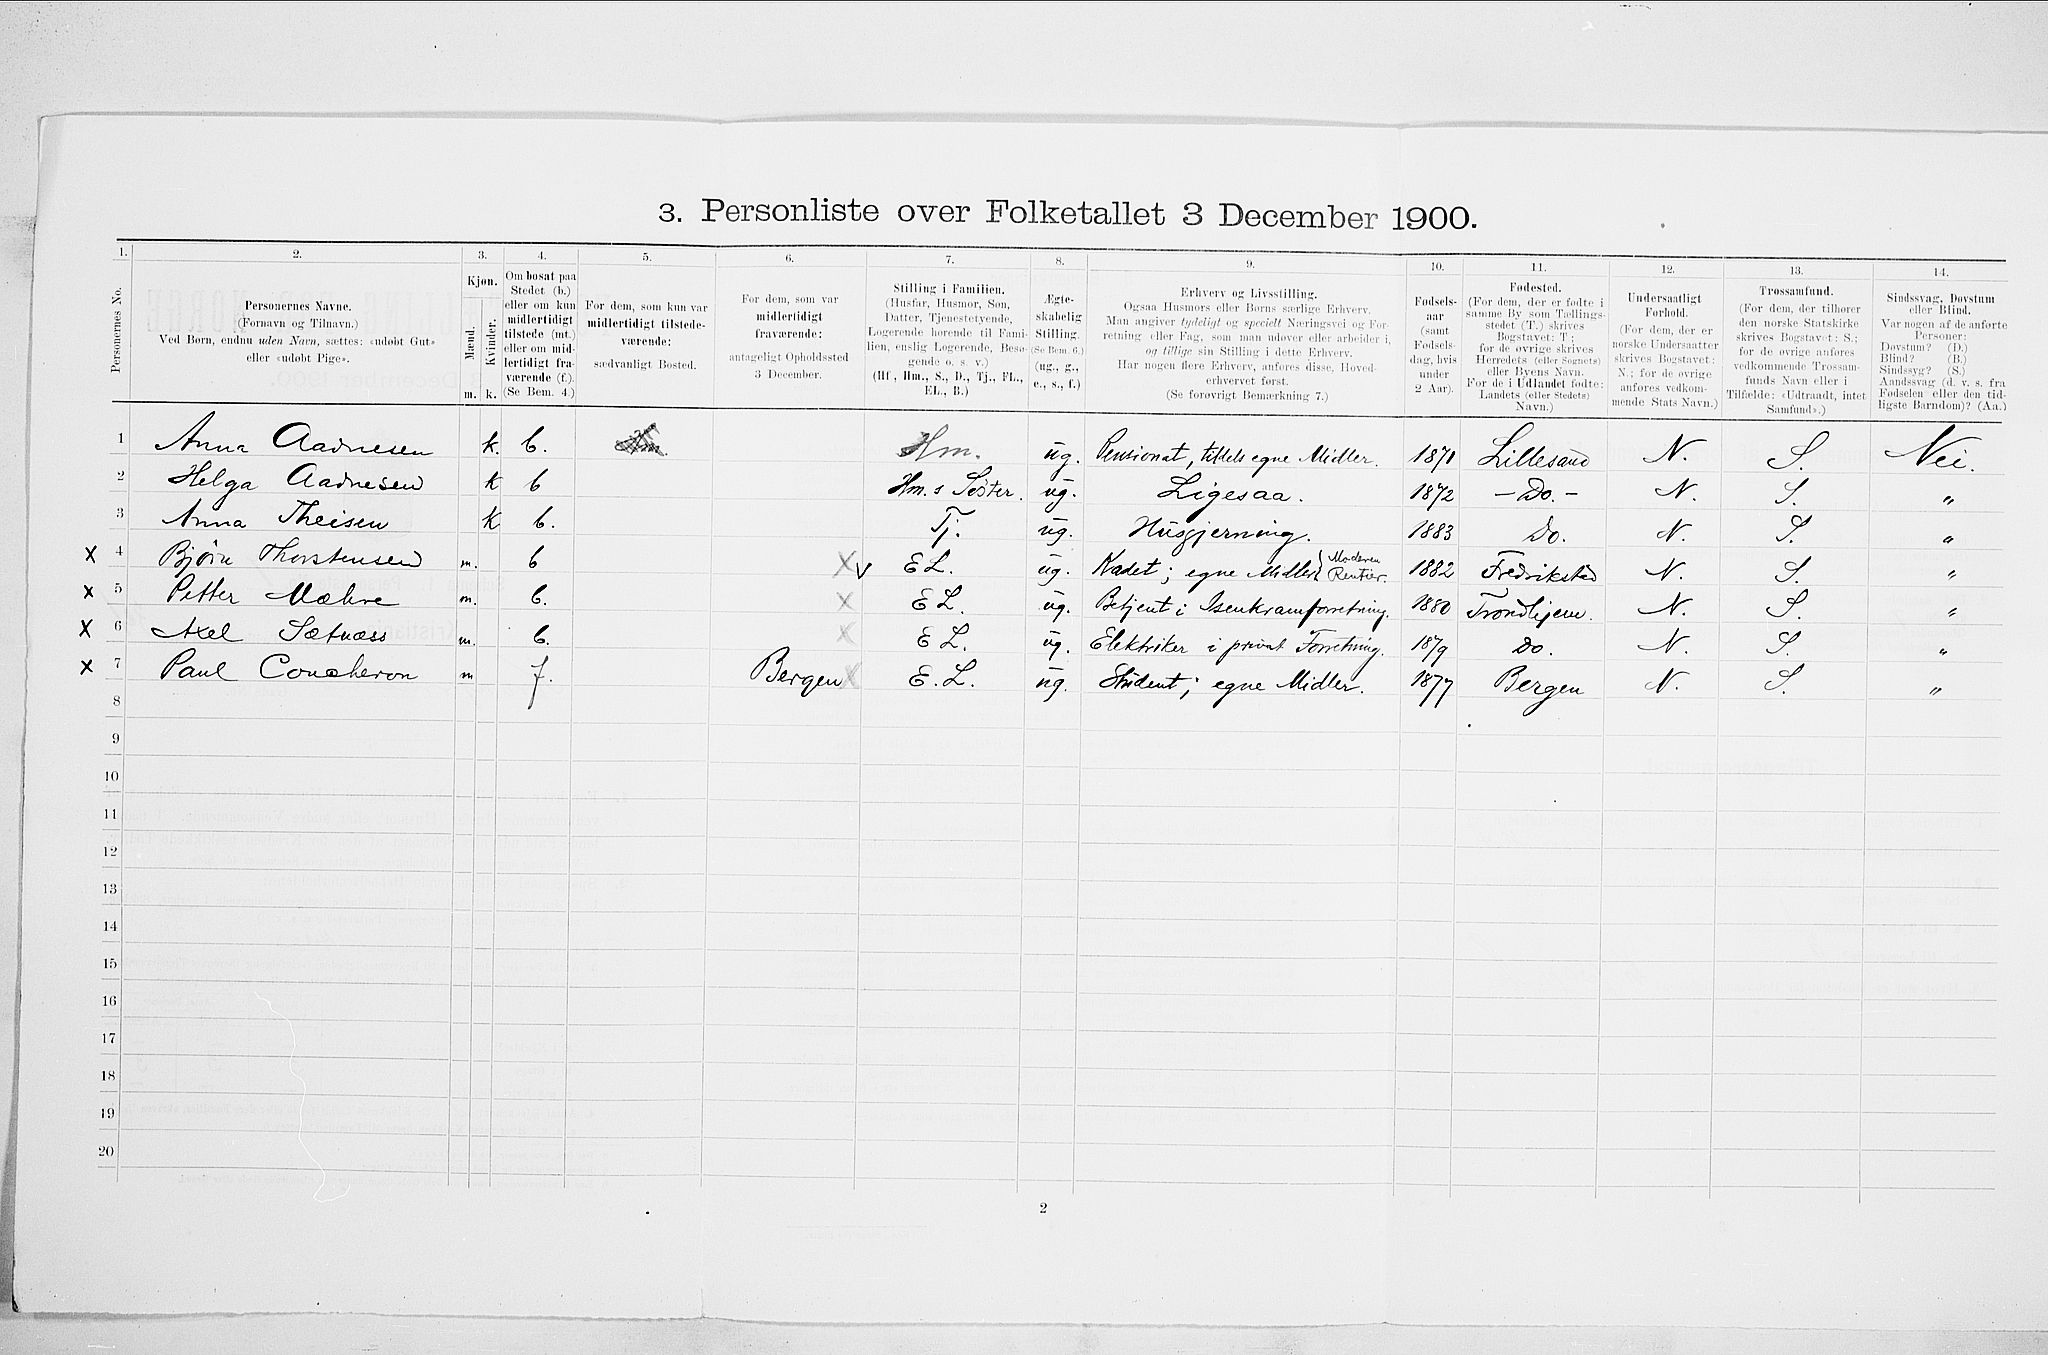 3. Personliste over Folketallet 3 December 1900.
1. 2. 3. 4. 5. 6. 7. 8. 9. 10. 11. 12. 13. 14.
Personernes No.
Personernes Navne.
(Fornavn og Tilnavn.)
Ved Børn, endnu uden Navn, sættes: «udøbt Gut»
eller «udøbt Pige».
Kjøn.
Mænd.
Kvinder.
m. k.
Om bosat paa
Stedet (b.)
eller om kun
midlertidigt
tilstede (mt.)
eller om mid-
lertidigt fra-
værende (f.).
(Se Bem. 4.)
For dem, som kun var
midlertidigt tilstede-
værende:
sædvanligt Bosted.
For dem, som var
midlertidigt
fraværende:
antageligt Opholdssted
3 December.
Stilling i Familien.
(Husfar, Husmor, Søn,
Datter, Tjenestetyende,
Logerende hørende til Fami-
lien, enslig Logerende, Besø-
gende o. s. v.)
(Hf., Hm., S., D., Tj., FL.,
EL., B.)
Ægte-
skabelig
Stilling.
(Se Bem. 6.)
(ug., g.,
e., s., f.)
Erhverv og Livsstilling.
Ogsaa Husmors eller Børns særlige Erhverv.
Man angiver tydeligt og specielt Næringsvei og For-
retning eller Fag, som man udøver eller arbeider i,
og tillige sin Stilling i dette Erhverv.
Har nogen flere Erhverv, anføres disse, Hoved-
erhvervet først.
(Se forøvrigt Bemærkning 7.)
Fødsels-
aar
(samt
Fødsels-
dag, hvis
under
2 Aar).
Fødested.
(For dem, der er fødte i
samme By som Tællings-
stedet (T.) skrives
Bogstavet: T;
for de øvrige skrives
Herredets (eller Sognets)
eller Byens Navn.
For de i Udlandet fødte:
Landets (eller Stedets)
Navn.)
Undersaatligt
Forhold.
(For dem, der er
norske Undersaatter
skrives Bogstavet:
N.; for de øvrige
anføres vedkom-
mende Stats Navn.)
Trossamfund.
(For dem, der tilhører
den norske Statskirke
skrives Bogstavet: S.;
for de øvrige anføres
vedkommende Trossam-
funds Navn eller i
Tilfælde: «Udtraadt, intet
Samfund».)
Sindssvag, Døvstum
eller Blind.
Var nogen af de anførte
Personer:
Døvstum? (D.)
Blind? (B.)
Sindssyg? (S.)
Aandssvag (d. v. s. fra
Fødselen eller den tid-
ligste Barndom)? (Aa.)
1 Anna Aadnesen k. b. Hm. ug. Pensionat, tildels egne Midler. 1871 Lillesand N. S. Nei.
2 Helga Aadnesen k b Hm.s Søster. ug. Ligesaa. 1872 - Do. - N. S. "
3 Anna Theisen k b. Tj. ug. Husgjerning. 1883 Do. N. S. "
x 4 Bjørn Thorstensen m. b X v EL. ug. Kadet; egne Midler (Moderen Rentier. 1882 Fredrikstad N. S. "
x 5 Petter Mæhre m. b. X EL. ug. Betjent i Isenkramforretning. 1880 Trondhjem. N. S. "
x 6 Axel Sætnæss m. b. X EL. ug. Elektriker i privat Forretning. 1879 Do. N. S. "
x 7 Paul Coucheron m f. Bergen X E.L. ug. Student; egne Midler. 1877 Bergen N. S. "
8
9
10
11
12
13
14
15
16
17
18
19
20
2